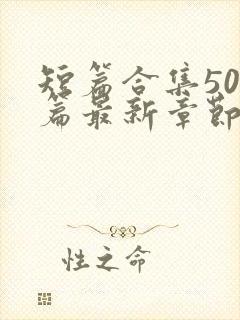 短篇合集50
篇最新章節
性之命